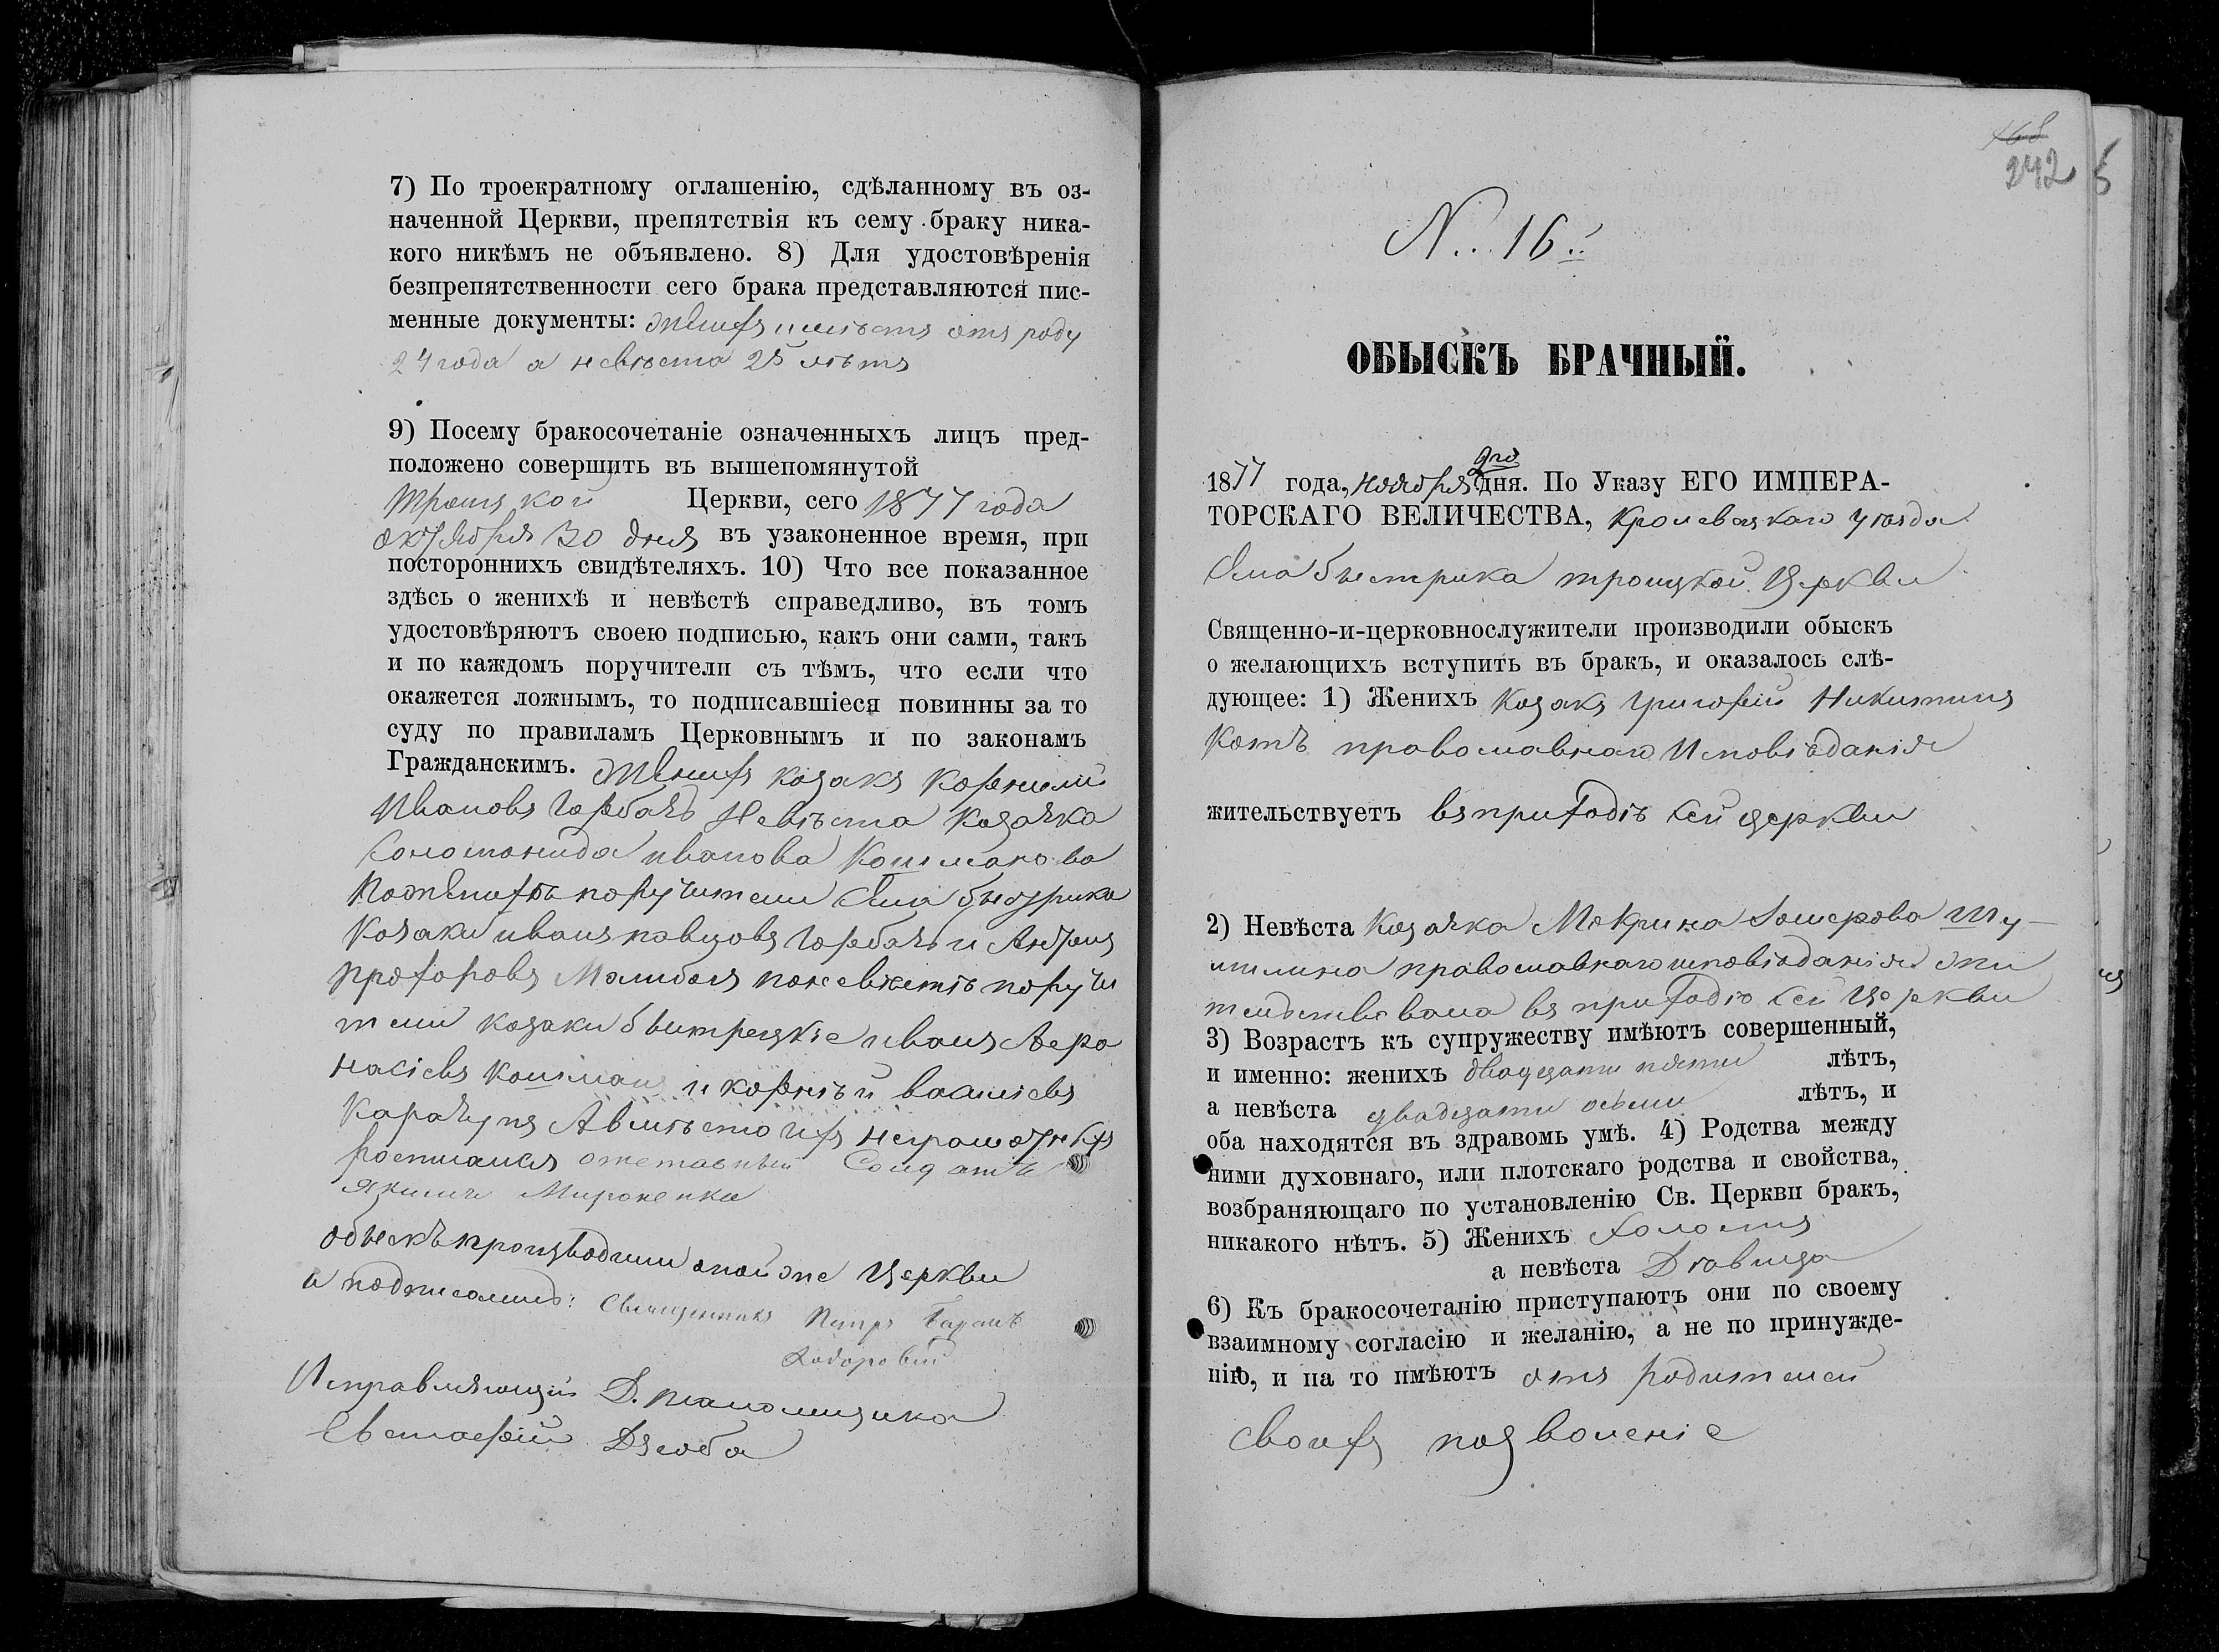 7) По троекратному оглашенію, сдѣланному въ оз-
наченной Церкви, препятствія къ сему браку ника-
кого никѣмъ не объявлено. 8) Для удостовѣренія
безпрепятственности сего брака представляются пис-
менные документы: женихъ имѣетъ отъ роду
24 года а невѣста 25 лѣтъ
9) Посему бракосочетаніе означенныхъ лицъ пред-
положено совершить въ вышепомянутой
Троицкой Церкви, сего 1877 года
октября 30 дня въ узаконенное время, при
постороннихъ свидѣтеляхъ. 10) Что все показанное
здѣсь о женихѣ и невѣстѣ справедливо, въ томъ
удостовѣряютъ своею подписью, какъ они сами, такъ
и по каждомъ поручители съ тѣмъ, что если что
окажется ложнымъ, то подписавшіеся повинны за то
суду по правиламъ Церковнымъ и по законамъ
Гражданскимъ. Женихъ козакъ Корнилій
Ивановъ Горбачъ Невѣста козачка
Соломонида иванова Кошманова
По женихѣ поручители Села быстрика
Козаки иванъ павловъ Горбачь и Андрей
прохоровъ по невѣстѣ поручи
тели козаки быстрецкіе иванъ Аѳа
насіевъ Кошманъ и корнѣй василіевъ
Карачунъ А вмѣсто ихъ неграмотныхъ
росписался отставный Солдатъ
Якимъ Мироненко
обыскъ производили оной же Церкви
и подписались: Священникъ Петръ
Ходоровій
Исправляющій Д. псаломщика
Евстафій Дзюба
168
242
N. 16й
ОБЫСКЪ БРАЧНЫЙ.
1877 года, ноября 9го дня. По Указу ЕГО ИМПЕРА-
ТОРСКАГО ВЕЛИЧЕСТВА, Кролевецкаго уѣзда
Села быстрика троицкой Церкви
Священно-и-церковнослужители производили обыскъ
о желающихъ вступить въ бракъ, и оказалось слѣ-
дующее: 1) Женихъ Козакъ Григорій Никитинъ
Котъ православнаго Исповѣданія
жительствуетъ въ приходѣ сей церкви
2) Невѣста Козачка Мокрина Шу-
православнаго исповѣданія жи
тельствовала въ приходѣ сей Церкви
3) Возрастъ къ супружеству имѣютъ совершенный,
и именно: женихъ двадцати пяти лѣтъ,
а невѣста двадцати осьми лѣтъ, и
оба находятся въ здравомъ умѣ. 4) Родства между
ними духовнаго, или плотскаго родства и свойства,
возбраняющаго по установленію Св. Церкви бракъ,
никакого нѣтъ. 5) Женихъ холостъ
а невѣста Дѣвица
6) Къ бракосочетанію приступаютъ они по своему
взаимному согласію и желанію, а не по принужде-
нію, и на то имѣютъ отъ родителей
своихъ позволеніе